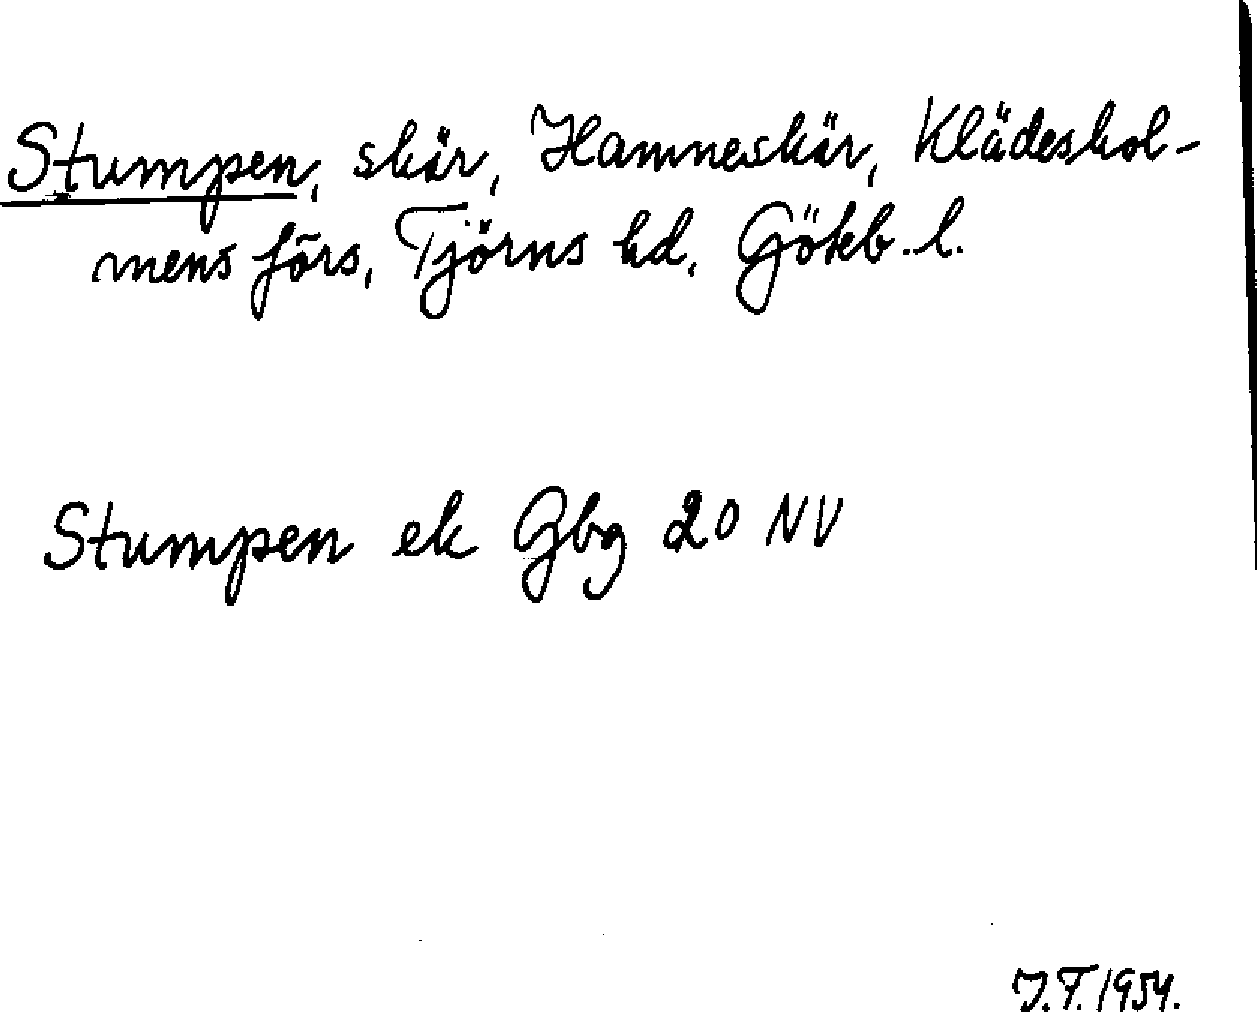 Stumpen, skär, Hamneskär, Klädeshol-
mens förs, Tjörns hd, Göteb. l.
Stumpen ek Gbg 20 NV
J.F. 1954.